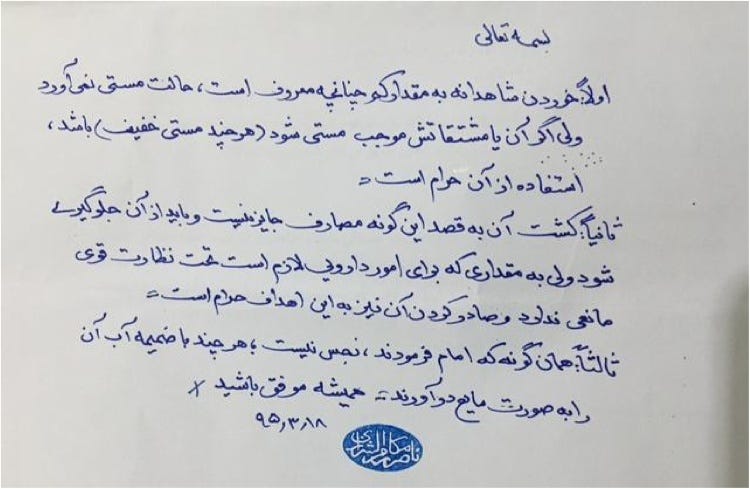 بسمه تعالی
اولاً: خوردن شاهدانه به مقدار کم چنانچه معروف است، حالت مستی نمی‌آورد
ولی اگر آن یا مشتقاتش موجب مستی شود (هر چند مستی خفیف) باشد،
استفاده از آن حرام است =
ثانیاً: کشت آن به قصد این گونه مصارف جایز نیست و باید از آن جلوگیری
شود ولی به مقداری که برای امور دارویی لازم است تحت نظارت قوی
مانعی ندارد و صادر کردن آن نیز به این اهداف حرام است =
ثالثاً: همان گونه که امام فرمودند، نجس نیست؛ هر چند با ضمیمه آب آن
را به صورت مایع درآورند = همیشه موفق باشید
۹۵٫۳٫۱۸
ناصر مکارم الشیرازی